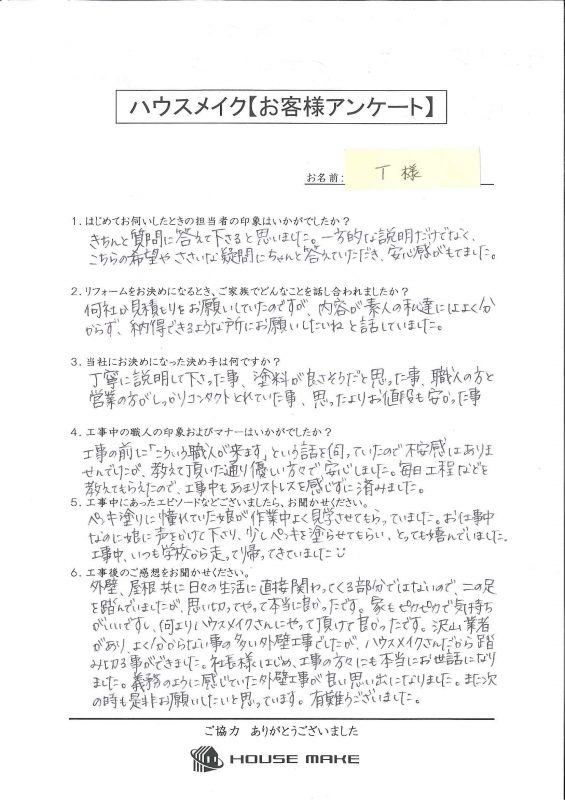 ハウスメイク【お客様アンケート】
お名前: T 様
1．はじめてお伺いしたときの担当者の印象はいかがでしたか？
きちんと質問に答えて下さると思いました。一方的な説明だけでなく、
こちらの希望やささいな疑問にちゃんと答えていただき、安心感がもてました。
2．リフォームをお決めになるとき、ご家族でどんなことを話し合われましたか？
何社か見積もりをお願いしていたのですが、内容が素人の私達にはよく分
からず、納得できるような所にお願いしたいねと話していました。
3．当社にお決めになった決め手は何ですか？
丁寧に説明して下さった事、塗料が良さそうだと思った事、職人の方と
営業の方がしっかりコンタクトとれていた事、思ったよりお値段も安かった事
4．工事中の職人の印象およびマナーはいかがでしたか？
工事の前に「こういう職人が来ます」という話を伺っていたので不安感はありま
せんでしたが、教えて頂いた通り優しい方々で安心しました。毎日工程などを
教えてもらえたので、工事中もあまりストレスを感じずに済みました。
5．工事中にあったエピソードなどございましたら、お聞かせください。
ペンキ塗りに憧れていた娘が作業中よく見学させてもらっていました。お仕事中
なのに娘に声をかけて下さり、少しペンキを塗らせてもらい、とっても嬉んでいました。
工事中、いつも学校から走って帰ってきていました
6．工事後のご感想をお聞かせください。
外壁、屋根共に日々の生活に直接関わってくる部分ではないので、二の足
を踏んでいましたが、思い切ってやって本当に良かったです。家もピカピカで気持ち
がいいですし、何よりハウスメイクさんにやって頂けて良かったです。沢山業者
があり、よく分からない事の多い外壁工事でしたが、ハウスメイクさんだから踏
み切る事ができました。社長様はじめ、工事の方々にも本当にお世話になり
ました。義務のように感じていた外壁工事が良い思い出になりました。また次
の時も是非お願いしたいと思っています。有難うございました。
ご協力 ありがとうございました
HOUSE MAKE